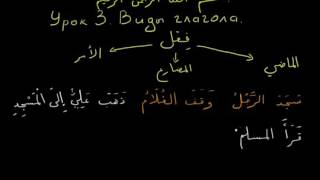 بسم الله الرحمن الرحيم
Урок 3. Виды глагола.
فِعْل
الماضي المضارع الأمر
سَجَدَ الرَّجُلُ وَقَفَ الْغُلَامُ ذَهَبَ عَلِيٌّ إِلَى الْمَسْجِدِ
قَرَأَ المسلم.